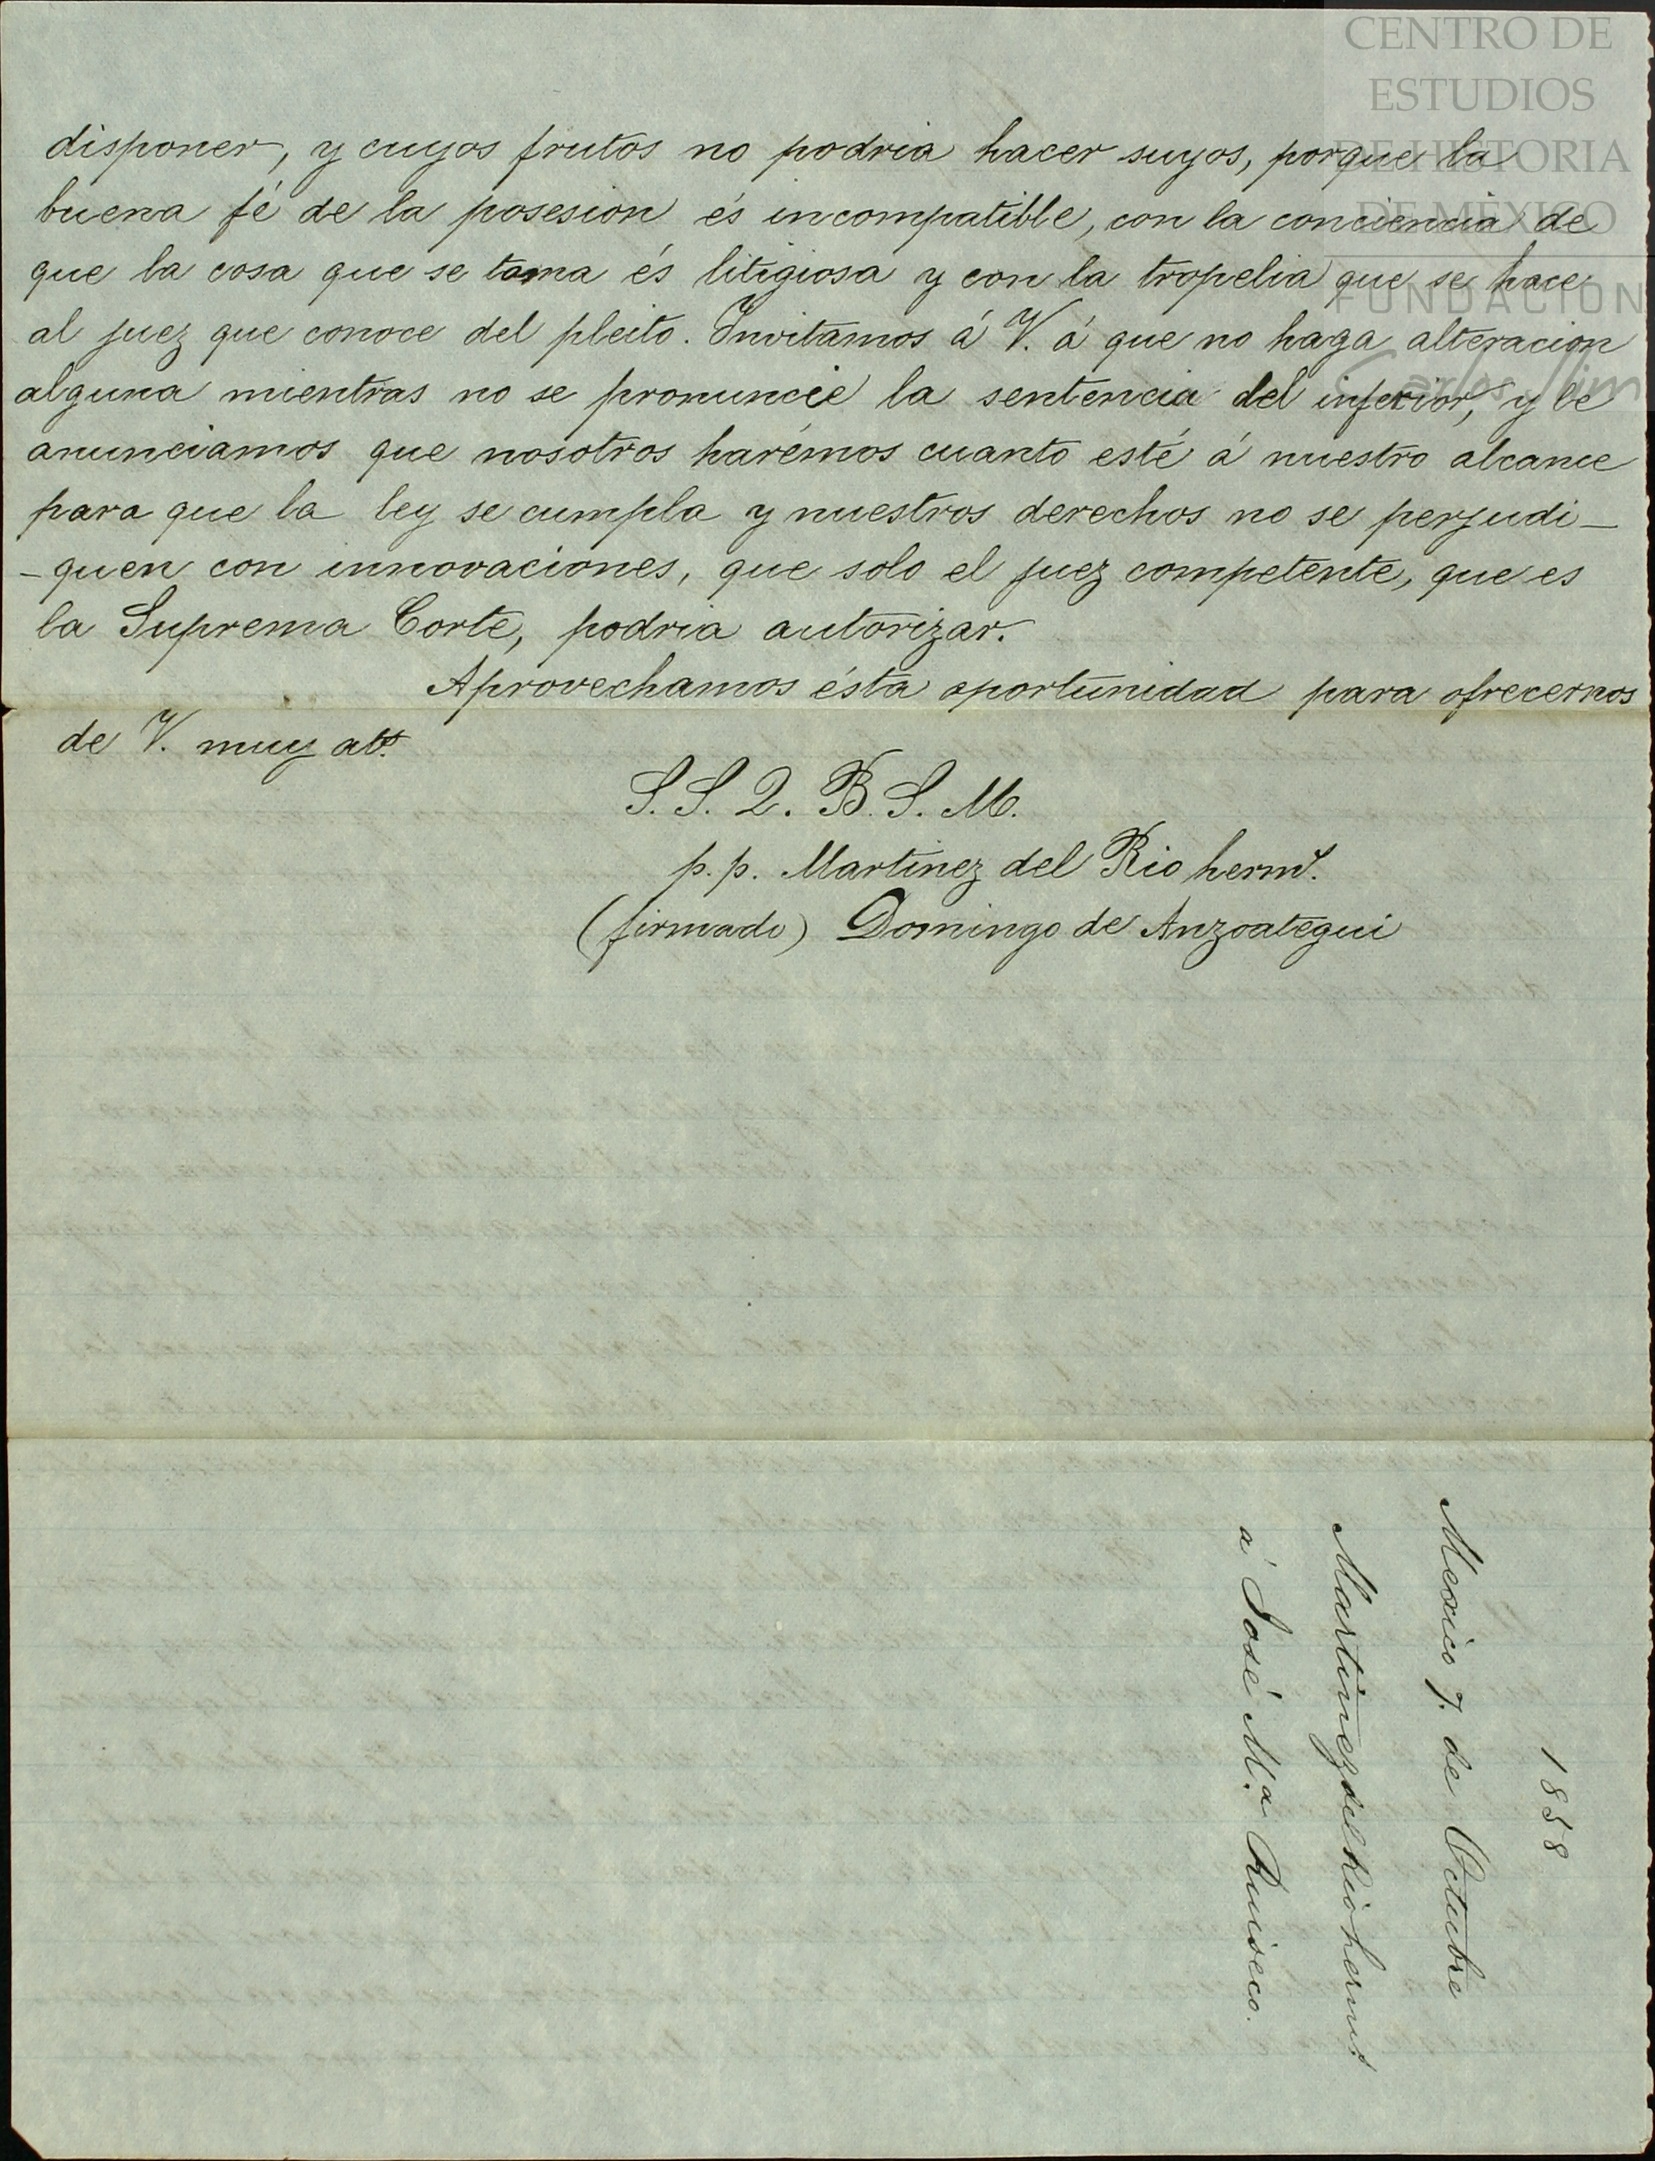 disponer, y cuyos frutos no podria hacer suyos, porque la
buena fé de la posesion és incompatible, con la conciencia de
que la cosa que se toma és litigiosa y con la tropelia que se hace
al juez que conoce del pleito. Invitamos á V. á que no haga alteracion
alguna mientras no se pronuncie la sentencia del inferior, y le
anunciamos que nosotros harémos cuanto esté á nuestro alcance
para que la ley se cumpla y nuestros derechos no se perjudi-
-quen con innovaciones, que solo el juez competente, que es
la Suprema Corte, podria autorizar.
Aprovechamos ésta oportunidad para ofrecernos
de V. muy ats.
S. S. Q. B. S. M.
p. p. Martinez del Rio hermˢ.
(firmado) Domingo de Anzoategui
1858
Mexico 7. de Octubre
Martinez del Rio hermˢ.
á José Mª. Ruiseco.
CENTRO DE
ESTUDIOS
DE HISTORIA
DE MÉXICO
FUNDACIÓN
Carlos Slim